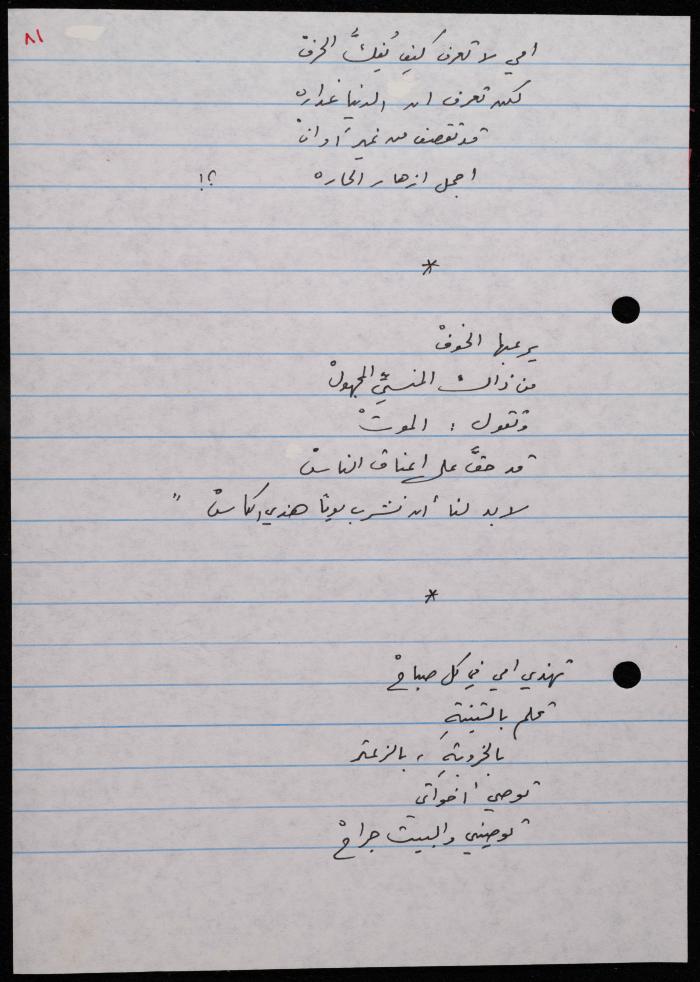 ٨١
امي لا تعرف كيف يُفكُّ الحرفْ
لكن تعرف ان الدنيا غداره
قد تقصف من غير أوانْ
اجمل ازهار الحاره ؟!
*
يرعبها الخوفْ
من ذاك المنسيِّ المجهولْ
وتقول : الموتْ
قد حقَّ على اعناق الناسْ
لابد لنا أن نشرب يوما هذي الكاسْ "
*
تهذي امي في كل صباحْ
تحلم بالتينةِ
بالخروبةِ ، بالزعتر
توصي أخواتي
توصيني والبيت جراحْ